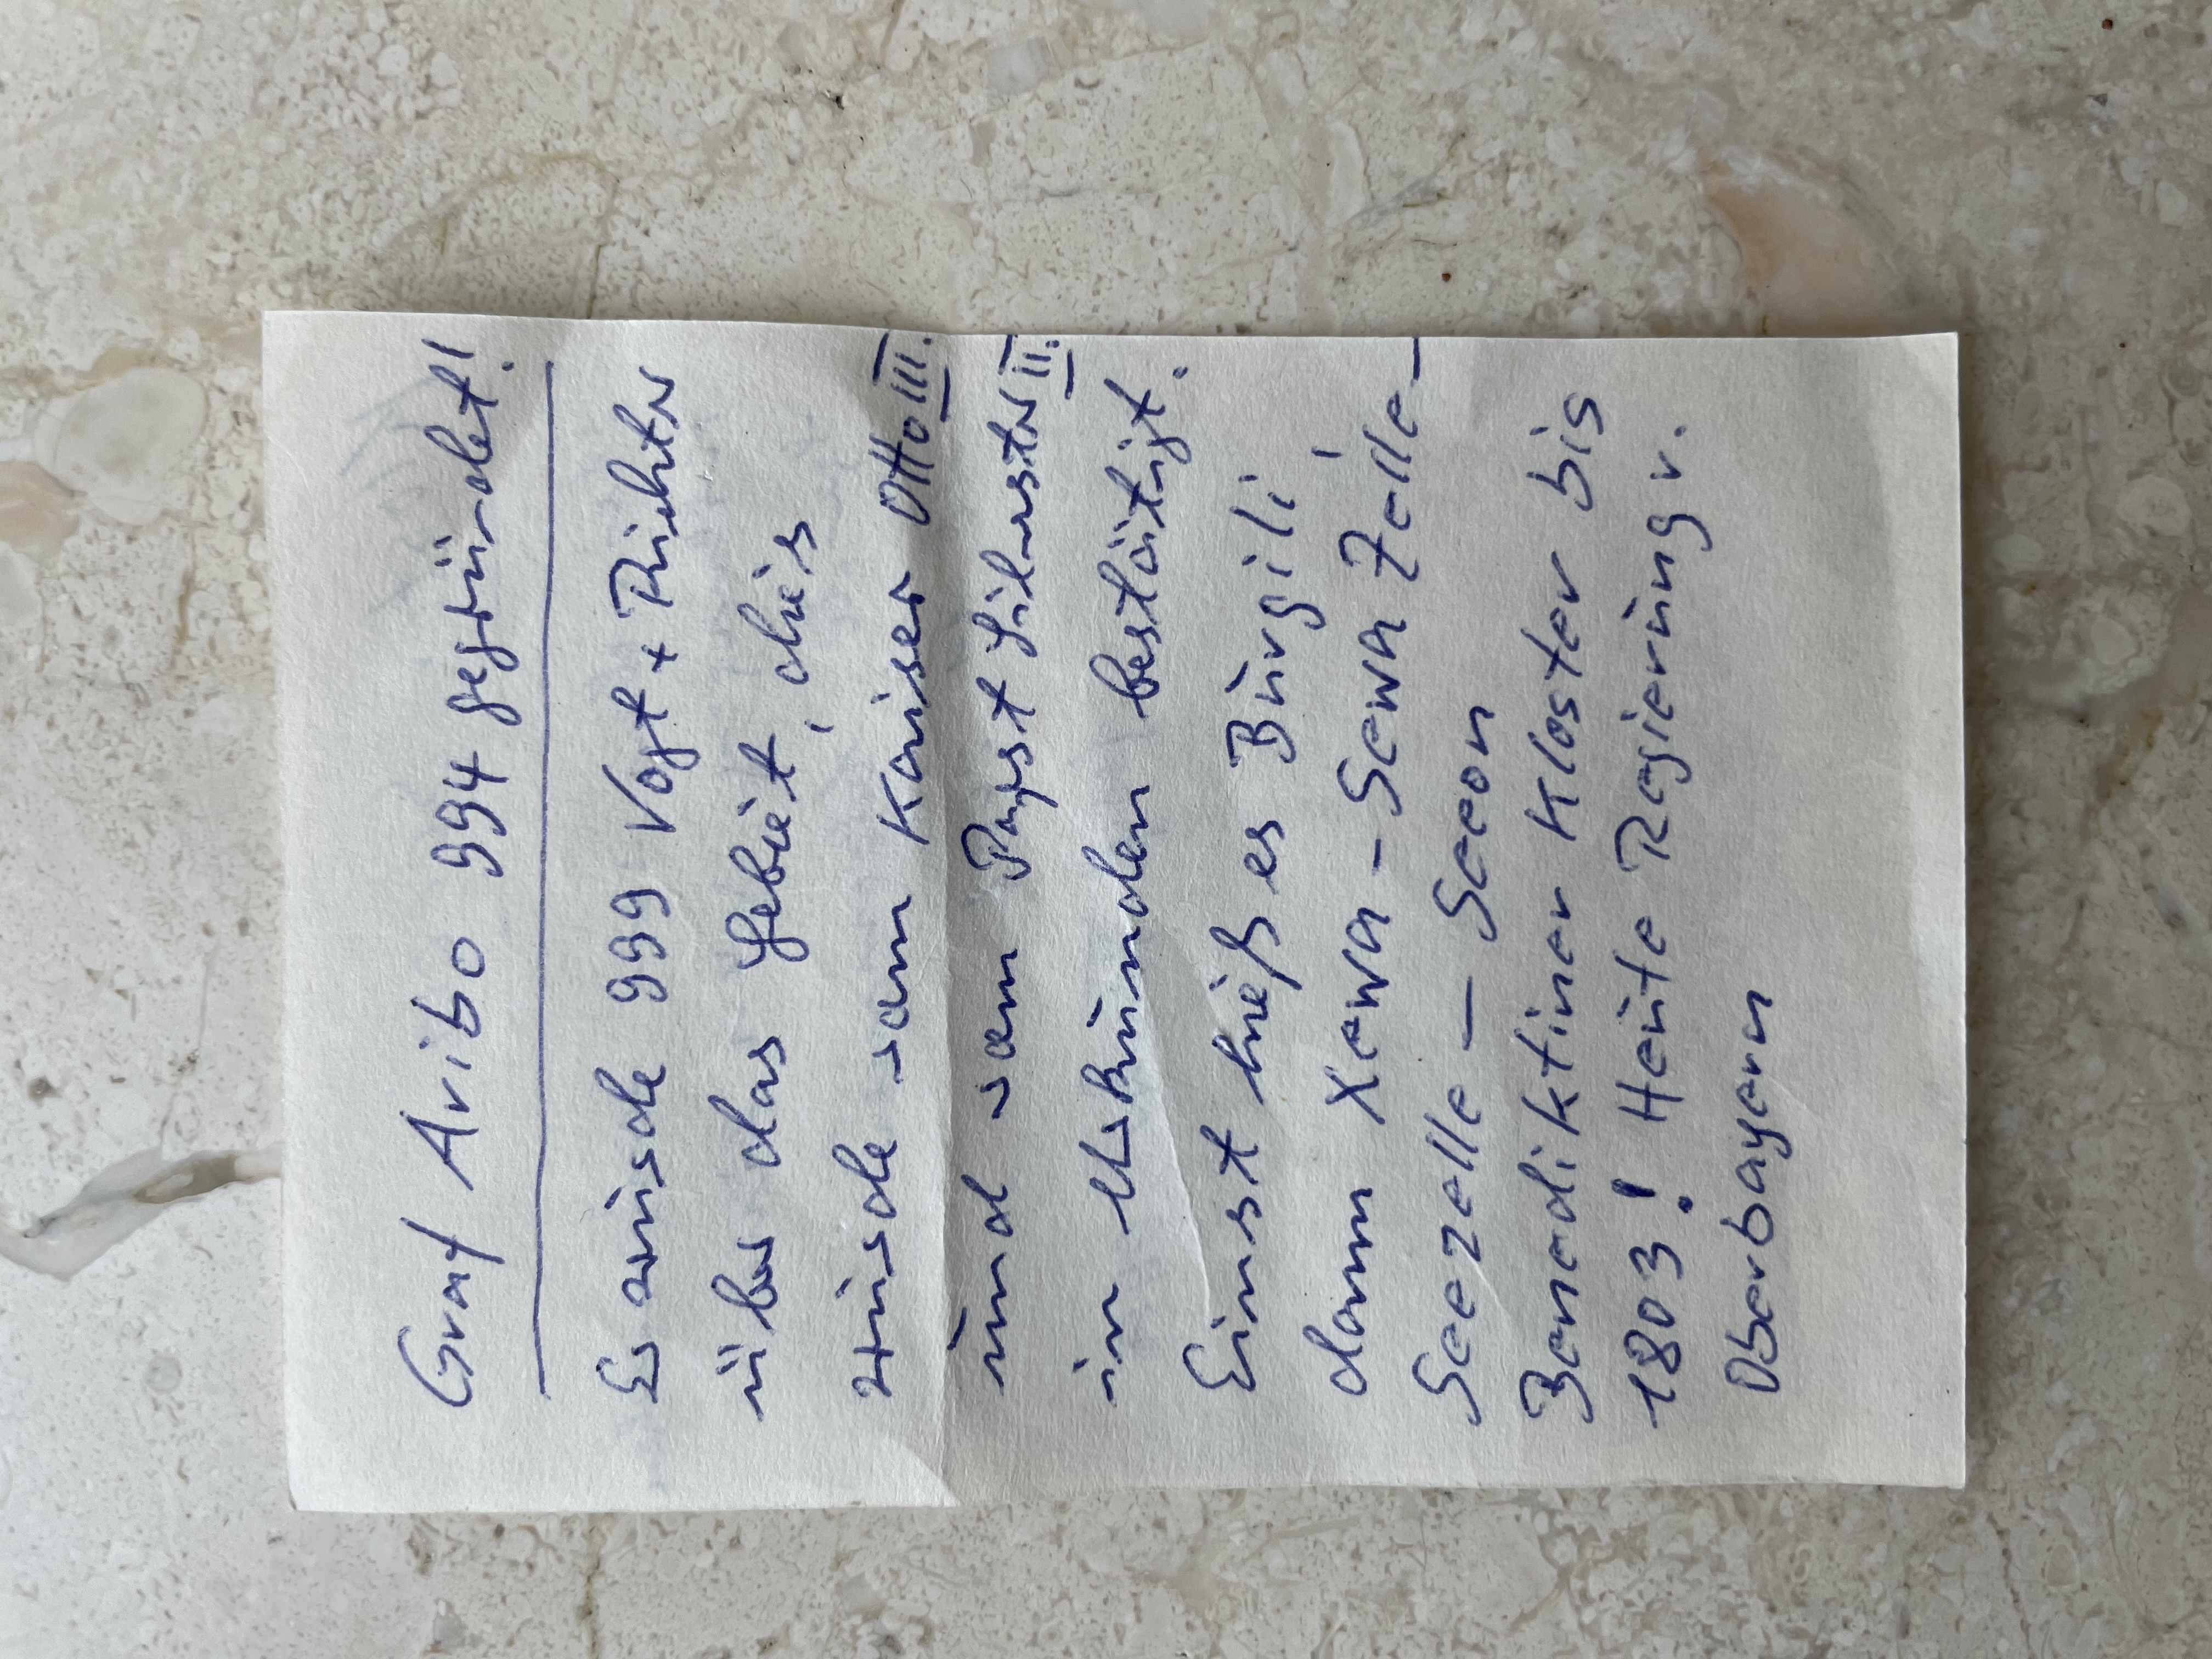 Graf Aribo 994 gegründet!
Er wurde 999 Vogt + Richter
über das Gebiet, dies
wurde vom Kaiser Otto III.
und vom Papst Silvester II.
in Urkunden bestätigt.
Einst hieß es Burgili
dann Xewa - Sewa Zelle -
Seezelle - Seeon
Benediktiner Kloster bis
1803! Heute Regierung v.
Oberbayern